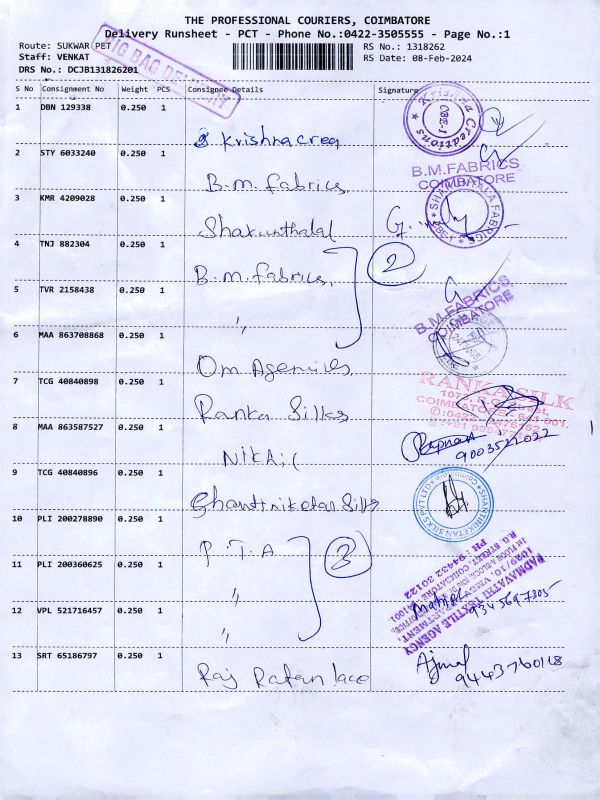 THE PROFESSIONAL COURIERS, COIMBATORE
Delivery Runsheet - PCT - Phone No.:0422-3505555 - Page No.:1
Route: SUKWAR PET
RS No.: 1318262
Staff: VENKAT
RS Date: 08-Feb-2024
DRS No.: DCJB131826201
BIG BAG DELIVERY
S No Consignment No Weight PCS Consignee Details Signature
1 DBN 129338 0.250 1
Krishna crea
Krishna Creations
CBE-1
2 STY 6033240 0.250 1
B.M. Fabrics
B.M.FABRICS
COIMBATORE
3 KMR 4209028 0.250 1
Shakunthalal
SHAKUNTHALA FABRICS
CBE-1
4 TNJ 882304 0.250 1
B.M. Fabrics, 2
5 TVR 2158438 0.250 1
"
B.M.FABRICS
COIMBATORE
6 MAA 863708868 0.250 1
Om Agencies
7 TCG 40840898 0.250 1
Ranka Silks
RANKA SILK
COIMBATORE - 641 001.
8 MAA 863587527 0.250 1
Nikhil
9003522022
9 TCG 40840896 0.250 1
Shantiniketan Silks
SHANTINIKETAN SILKS PVT LTD
Coimbatore
10 PLI 200278890 0.250 1
P.T.A 3
11 PLI 200360625 0.250 1
"
12 VPL 521716457 0.250 1
"
PADMAVATHI TEXTILE AGENCY
R.G. STREET, COIMBATORE
PH : 94432 30122
9345697305
13 SRT 65186797 0.250 1
Raj Ratan lace
Ajmal
9443760118